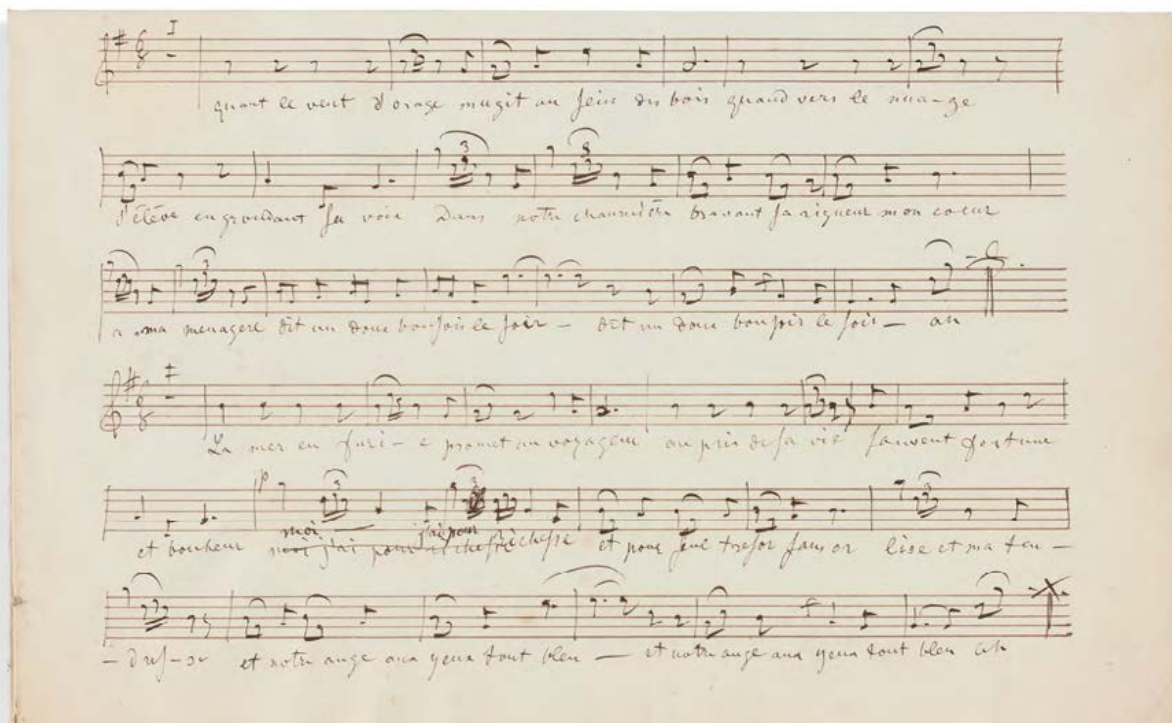 quant le vent d'orage mugit au sein des bois quand vers le nuage
s'élève en grondant sa voix dans notre chaumière bravant sa rigueur mon coeur
a ma menagere dit un doux bonsoir le soir – dit un doux bonsoir le soir – ah
La mer en furi-e promet au voyageur au pris de sa vie souvent fortune
et bonheur moi j'ai pour richesse et pour seul tresor sans or lise et ma ten-
-dres-se et notre ange aux yeux tout bleu – et notre ange aux yeux tout bleu ah